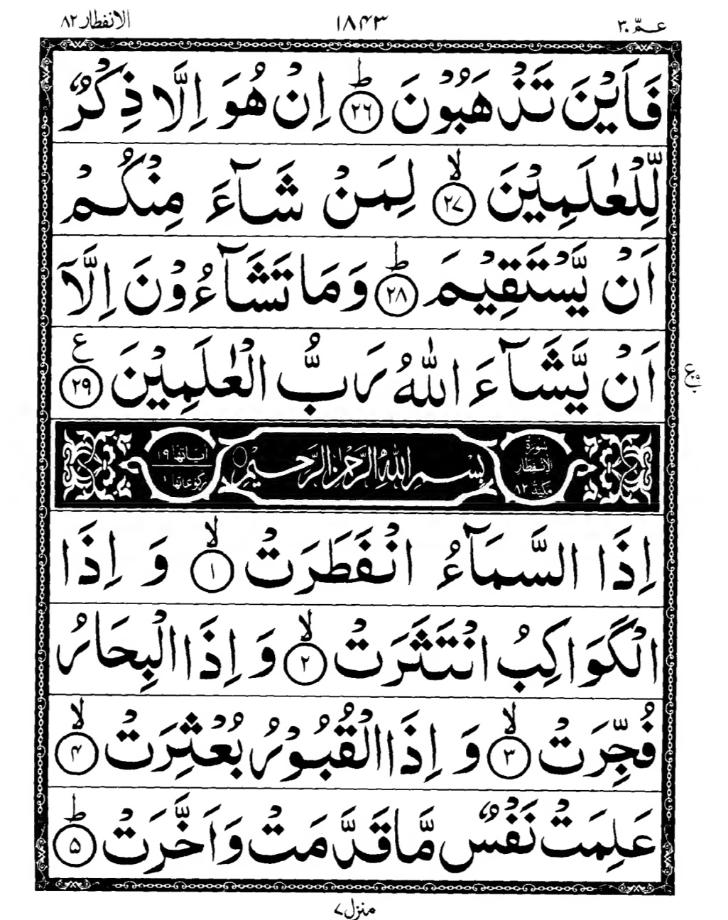 عـمّ ٣٠ ١٨٤٣ الانفطار ٨٢
فَاَيْنَ تَذْهَبُوْنَ ؕ﴿۲۶﴾ اِنْ هُوَ اِلَّا ذِكْرٌ
لِّلْعٰلَمِيْنَ ۙ﴿۲۷﴾ لِمَنْ شَآءَ مِنْكُمْ
اَنْ يَّسْتَقِيْمَ ؕ﴿۲۸﴾ وَمَا تَشَآءُوْنَ اِلَّاۤ
اَنْ يَّشَآءَ اللّٰهُ رَبُّ الْعٰلَمِيْنَ ﴿۲۹﴾ ع
سُوْرَةُ الْاِنْفِطَار مَكِّيَّةٌ بِسْمِ اللّٰهِ الرَّحْمٰنِ الرَّحِيْمِ اٰيَاتُهَا ١٩ رُكُوْعَاتُهَا ١
اِذَا السَّمَآءُ انْفَطَرَتْ ۙ﴿۱﴾ وَ اِذَا
الْكَوَاكِبُ انْتَثَرَتْ ۙ﴿۲﴾ وَ اِذَا الْبِحَارُ
فُجِّرَتْ ۙ﴿۳﴾ وَ اِذَا الْقُبُوْرُ بُعْثِرَتْ ۙ﴿۴﴾
عَلِمَتْ نَفْسٌ مَّا قَدَّمَتْ وَاَخَّرَتْ ؕ﴿۵﴾
منزل ٧